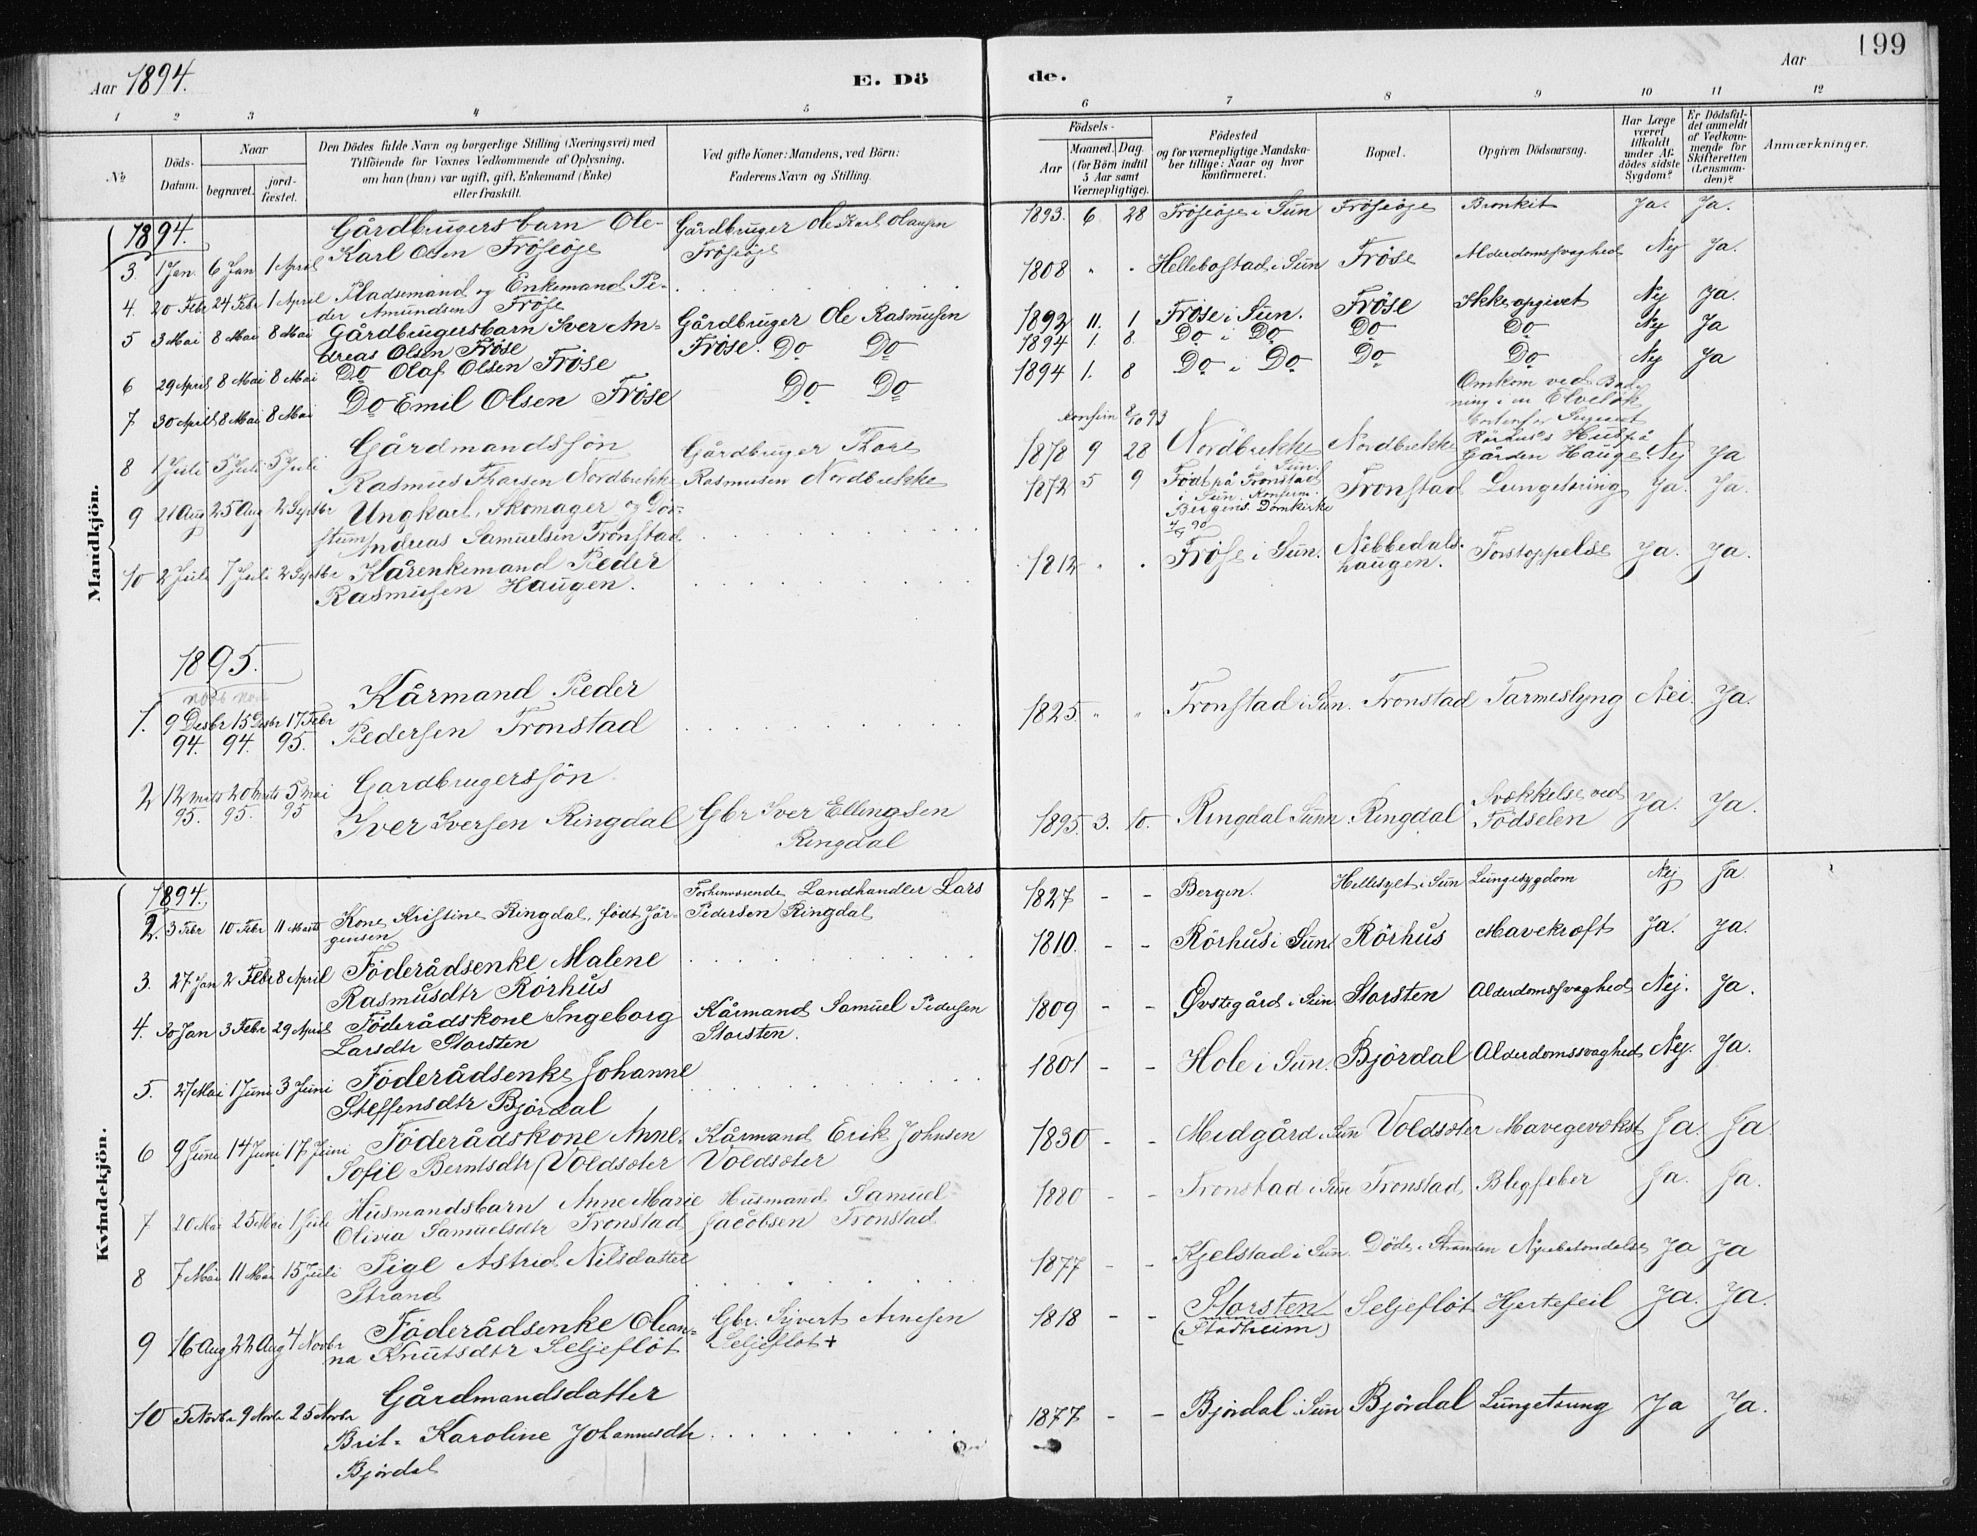 199
Aar 1894. E. Dö de. Aar
1 2 3 4 5 6 7 8 9 10 11 12
No
Döds-Datum.
Naar
begravet.
jord-fæstet.
Den Dödes fulde Navn og borgerlige Stilling (Næringsvei) med
Tilföiende for Voxnes Vedkommende af Oplysning,
om han (hun) var ugift, gift, Enkemand (Enke)
eller fraskilt.
Ved gifte Koner: Mandens, ved Börn:
Faderens Navn og Stilling.
Födsels-
Aar
Maaned. Dag.
(for Börn indtil
5 Aar samt
Værnepligtige).
Födested
og for værnepligtige Mandska-
ber tillige: Naar og hvor
konfirmeret.
Bopæl.
Opgiven Dödsaarsag.
Har Læge
været
tilkaldt
under Af-
dödes sidste
Sygdom?
Er Dödsfal-
det anmeldt
af Vedkom-
mende for
Skifteretten
(Lensman-
den)?
Anmærkninger.
Mandkjön.
1894.
Gårdbrugersbarn Ole- Gårdbruger Ole Karl Olausen 1893. 6. 28 Fröseöje i Sun Fröseöje Bronkit Ja. Ja.
3. 1 Jan. 6 Jan 1 April Karl Olsen Fröseöje Fröseöje
Pladsemand og Enkemand Pe- 1808 " " Hellebostad i Sun Fröse Alderdomssvaghed Nej Ja.
4. 20 Febr 24 Febr 1 April der Amundsen Fröse
5 3 Mai 8 Mai 8 Mai Gårdbrugersbarn Iver An- Gårdbruger Ole Rasmusen 1892 11. 1 Fröse i Sun. Fröse Ikke opgivet Nej Ja.
dreas Olsen Fröse Fröse. Do Do 1894 1. 8. Do i Do Do Do Nej Ja
6 29 April 8 Mai 8 Mai Do Olaf Olsen Fröse Do Do 1894 1. 8 Do i Do Do Do Nej Ja
7 30 April 8 Mai 8 Mai Do Emil Olsen Fröse
Omkom ved Bad-
ning i en Elvelök
konfirm 8/10 93
Gårdmandssön Gårdbruger Thore 1878 9 28 Nordbrekke Nordbrekke Rörhus's Hus på
8 1 Juli 5 Juli 5 Juli Rasmus Thorsen Nordbrekke Rasmusen Nordbrekke i Sun. Gården Hauge. Nej Ja
9 21 Aug 25 Aug 2 Septbr Ungkarl, Skomager og Döv- 1872 5 9 Födt på Tronstad Tronstad Lungetæring Ja. Ja.
stum Andreas Samuelsen Tronstad i Sun. Konfirm.
Bergens Domkirke
10 2 Juli 7 Juli 2 Septbr Kårenkemand Peder 1812 " " Fröse i Sun. Nebbedals- Forstoppelse Ja. Ja.
Rasmusen Haugen. haugen.
1895.
Kårmand Peder
1. 9 Desbr 15 Desbr 17 Febr Pedersen Tronstad 1825. " " Tronstad i Sun. Tronstad Tarmeslyng Nei. Ja.
94. 94. 95.
Gardbrugerssön
2 12 Marts 20 Marts 5 Mai Iver Iversen Ringdal Gbr Iver Ellingsen 1895. 3. 10. Ringdal Sunn. Ringdal Svækkelse ved Ja. Ja.
95. 95. 95 Ringdal Födselen
Kvindekjön.
1894.
Forhenværende Landhandler Lars 1827 - - Bergen. Hellesylt i Sun Lungesygdom Nej Ja
2. 3 Febr 10 Febr 11 Marts Kone Kristine Ringdal, födt Jör- Pedersen Ringdal
gensen
3. 27 Jan 2 Febr 8 April Föderådsenke Malene 1810. - - Rörhus i Sun Rörhus Mavekræft Ja. Ja.
Rasmusdtr Rörhus
4. 30 Jan 3 Febr 29 April Föderådskone Ingeborg Kårmand Samuel Pedersen 1809 - - Øvstegård i Sun Storsten Alderdomssvaghed Nej. Ja.
Larsdtr Storsten Storsten.
5. 27 Mai 1 Juni 3 Juni Föderådsenke Johanne 1801 - - Hole i Sun. Björdal Alderdomssvaghed Nej. Ja.
Steffensdtr Björdal
6 9 Juni 14 Juni 17 Juni Föderådskone Anne- Kårmand Erik Johnsen 1830 - - Midgård i Sun Voldsæter Mavegevækst Ja Ja
Sofie Berntsdtr Voldsæter Voldsæter
7 20 Mai 25 Mai 1 Juli Husmandsbarn Anne Marie Husmand Samuel 1880 - - Tronstad i Sun Tronstad Blegfeber Ja. Ja.
Olivia Samuelsdtr Tronstad Jacobsen Tronstad
8 7 Mai 11 Mai 15 Juli Pige Astrid Nilsdatter 1877 - - Kjelstad i Sun. Döde i Stranden Nyrebetændelse Ja Ja
Strand
9 16 Aug 22 Aug 4 Novbr Föderådsenke Olean- Gbr. Syvert Arnesen 1818 - - Storsten Seljeflöt Hjertefeil Ja. Ja.
na Knutsdtr Seljeflöt Seljeflöt + (Stadheim)
10 5 Novbr 9 Novbr 25 Novbr Gårdmandsdatter 1877 - - Björdal i Sun Björdal Lungetæring Ja Ja.
Brit- Karoline Johannesdtr
Björdal